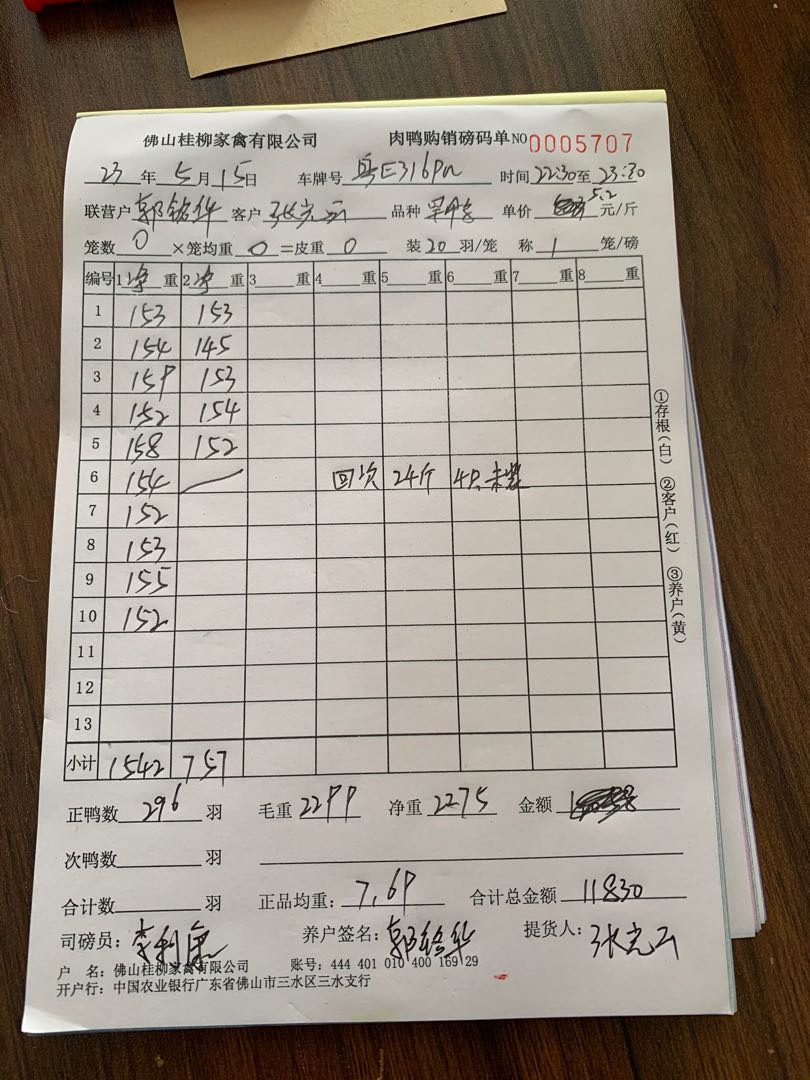 佛山桂柳家禽有限公司 肉鸭购销磅码单 NO 0005707
23 年 5 月 15 日 车牌号 粤E316 时间 22:30 至 23:30
联营户 郭铭华 客户 张光云 品种 单价 5.2 元/斤
笼数 0 ×笼均重 0 =皮重 0 装 20 羽/笼 称 1 笼/磅
编号 1 净 重 2 净 重 3 重 4 重 5 重 6 重 7 重 8 重
1 153 153
2 154 145
3 159 153
4 152 154
5 158 152
6 154 回次 24斤 4只未装
7 152
8 153
9 155
10 152
11
12
13
小计 1542 757
①存根(白) ②客户(红) ③养户(黄)
正鸭数 296 羽 毛重 2299 净重 2275 金额
次鸭数 羽
合计数 羽 正品均重: 7.69 合计总金额 11830
司磅员: 李利 养户签名: 郭铭华 提货人: 张光云
户 名: 佛山桂柳家禽有限公司 账号: 444 401 010 400 169 29
开户行: 中国农业银行广东省佛山市三水区三水支行